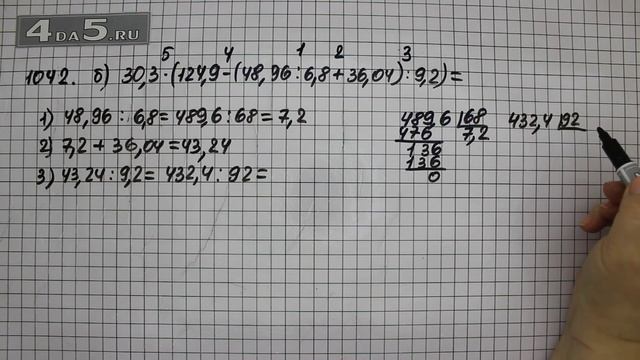 4DA5.RU
5 4 1 2 3
1042. б) 30,3·(124,9-(48,96:6,8+36,04):9,2)=
1) 48,96:6,8=489,6:68=7,2
2) 7,2+36,04=43,24
3) 43,24:9,2=432,4:92=
489,6 68 432,4 92
476 7,2
136
136
0